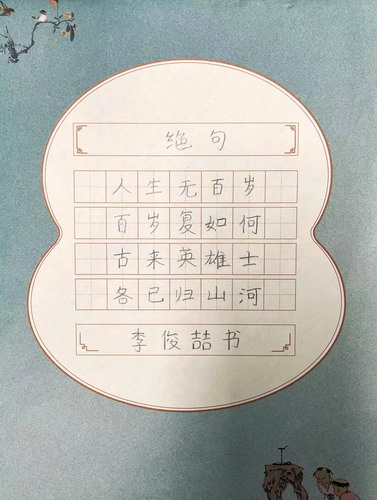 绝句
人生无百岁
百岁复如何
古来英雄士
各已归山河
李俊喆书